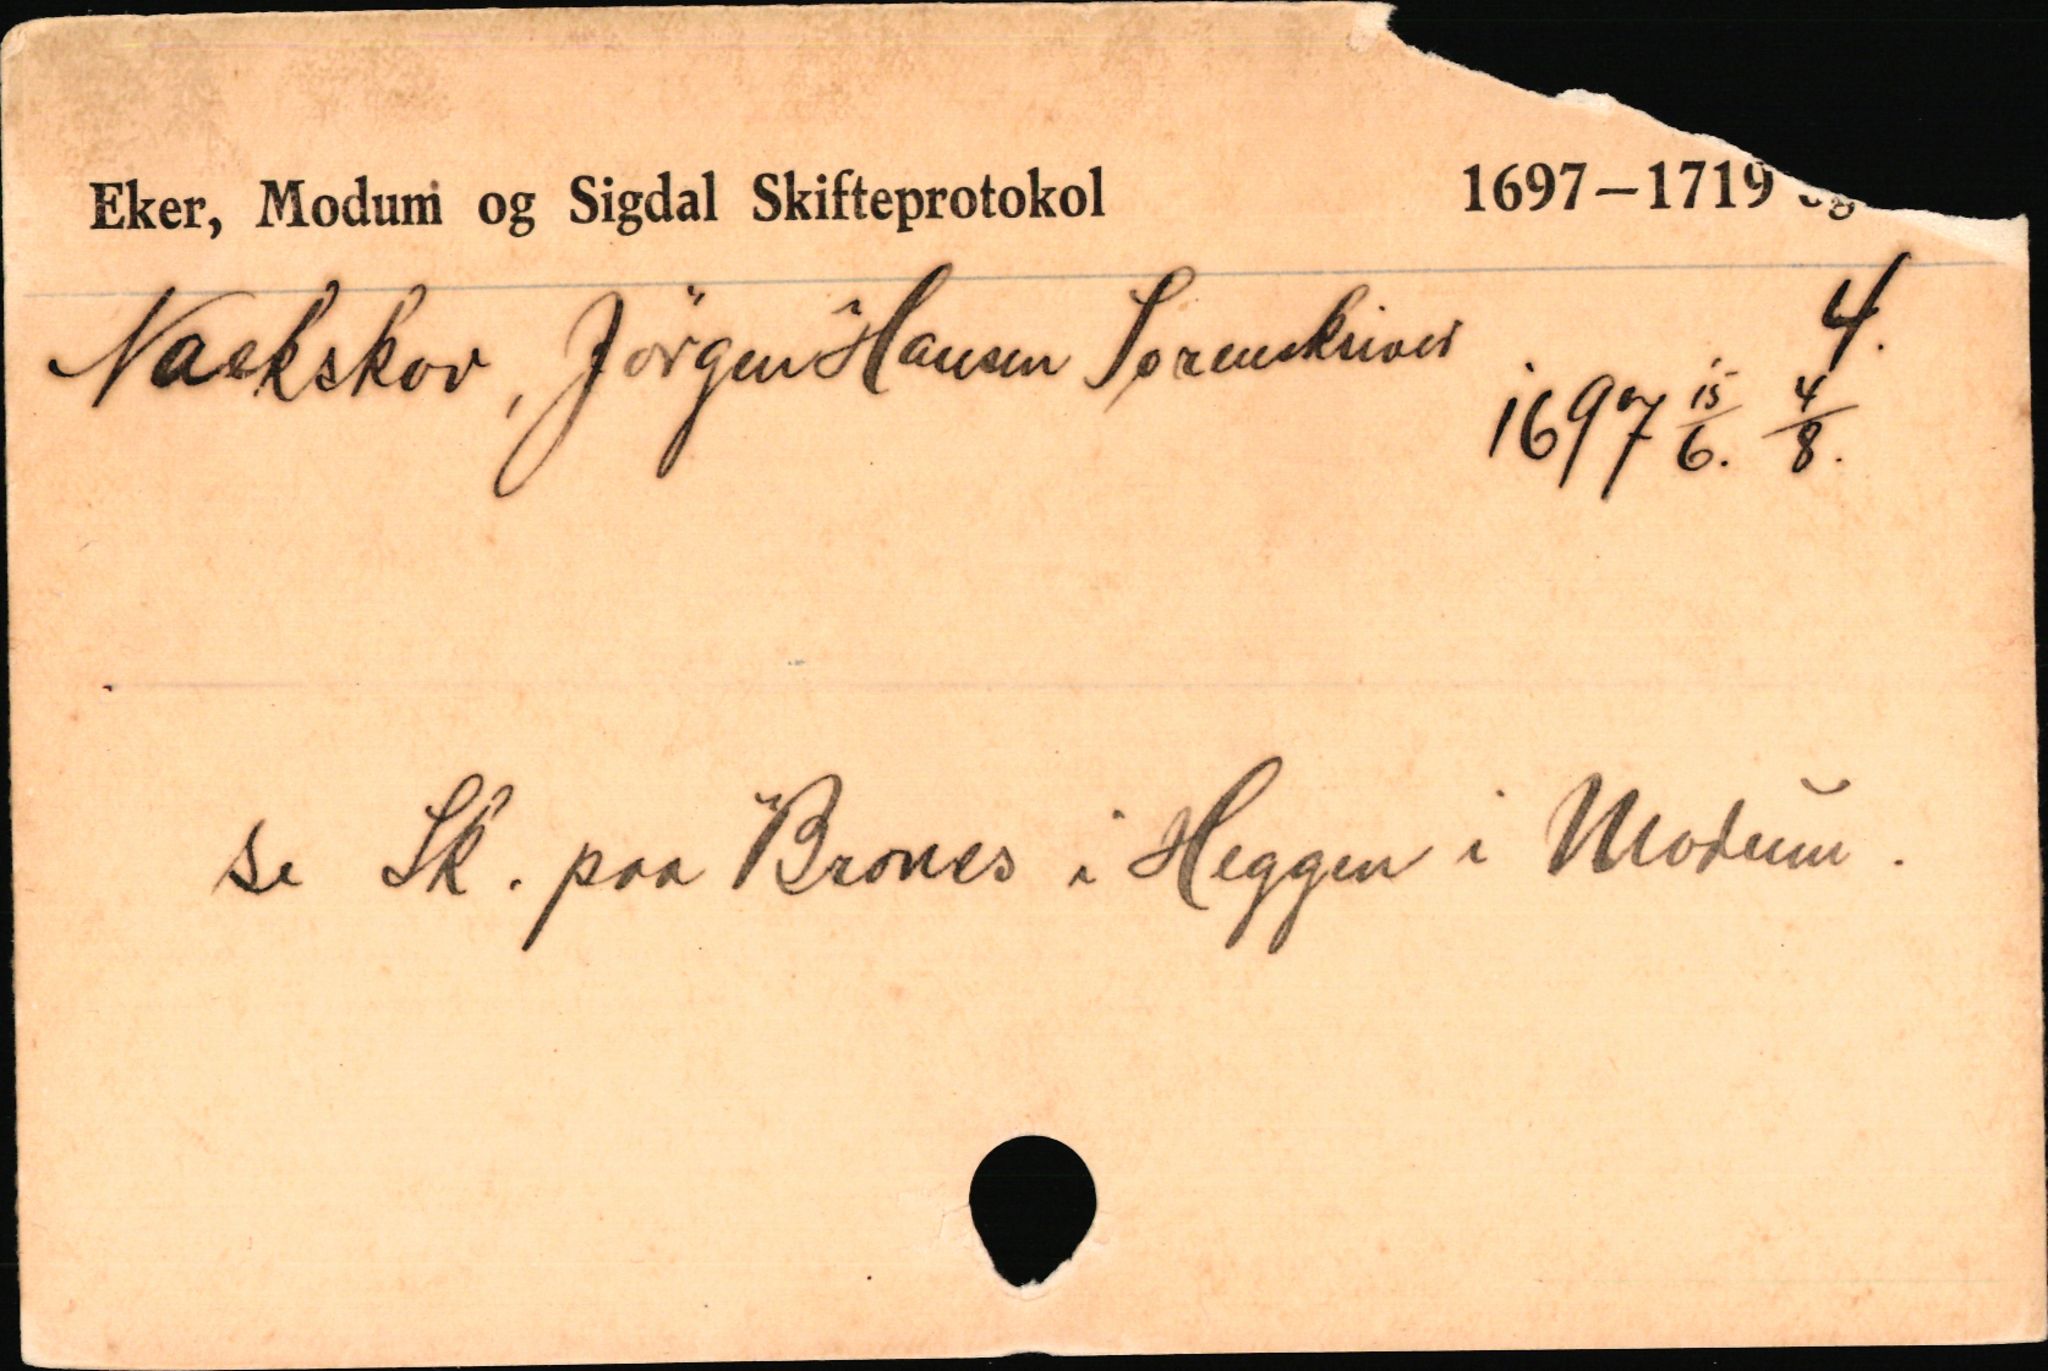 Eker, Modum og Sigdal Skifteprotokol 1697—1719 og
Nackskov, Jörgen Hansen Sorenskriver 4.
1697 15/6. 4/8.
se Sk. paa Brones i Heggen i Modum.